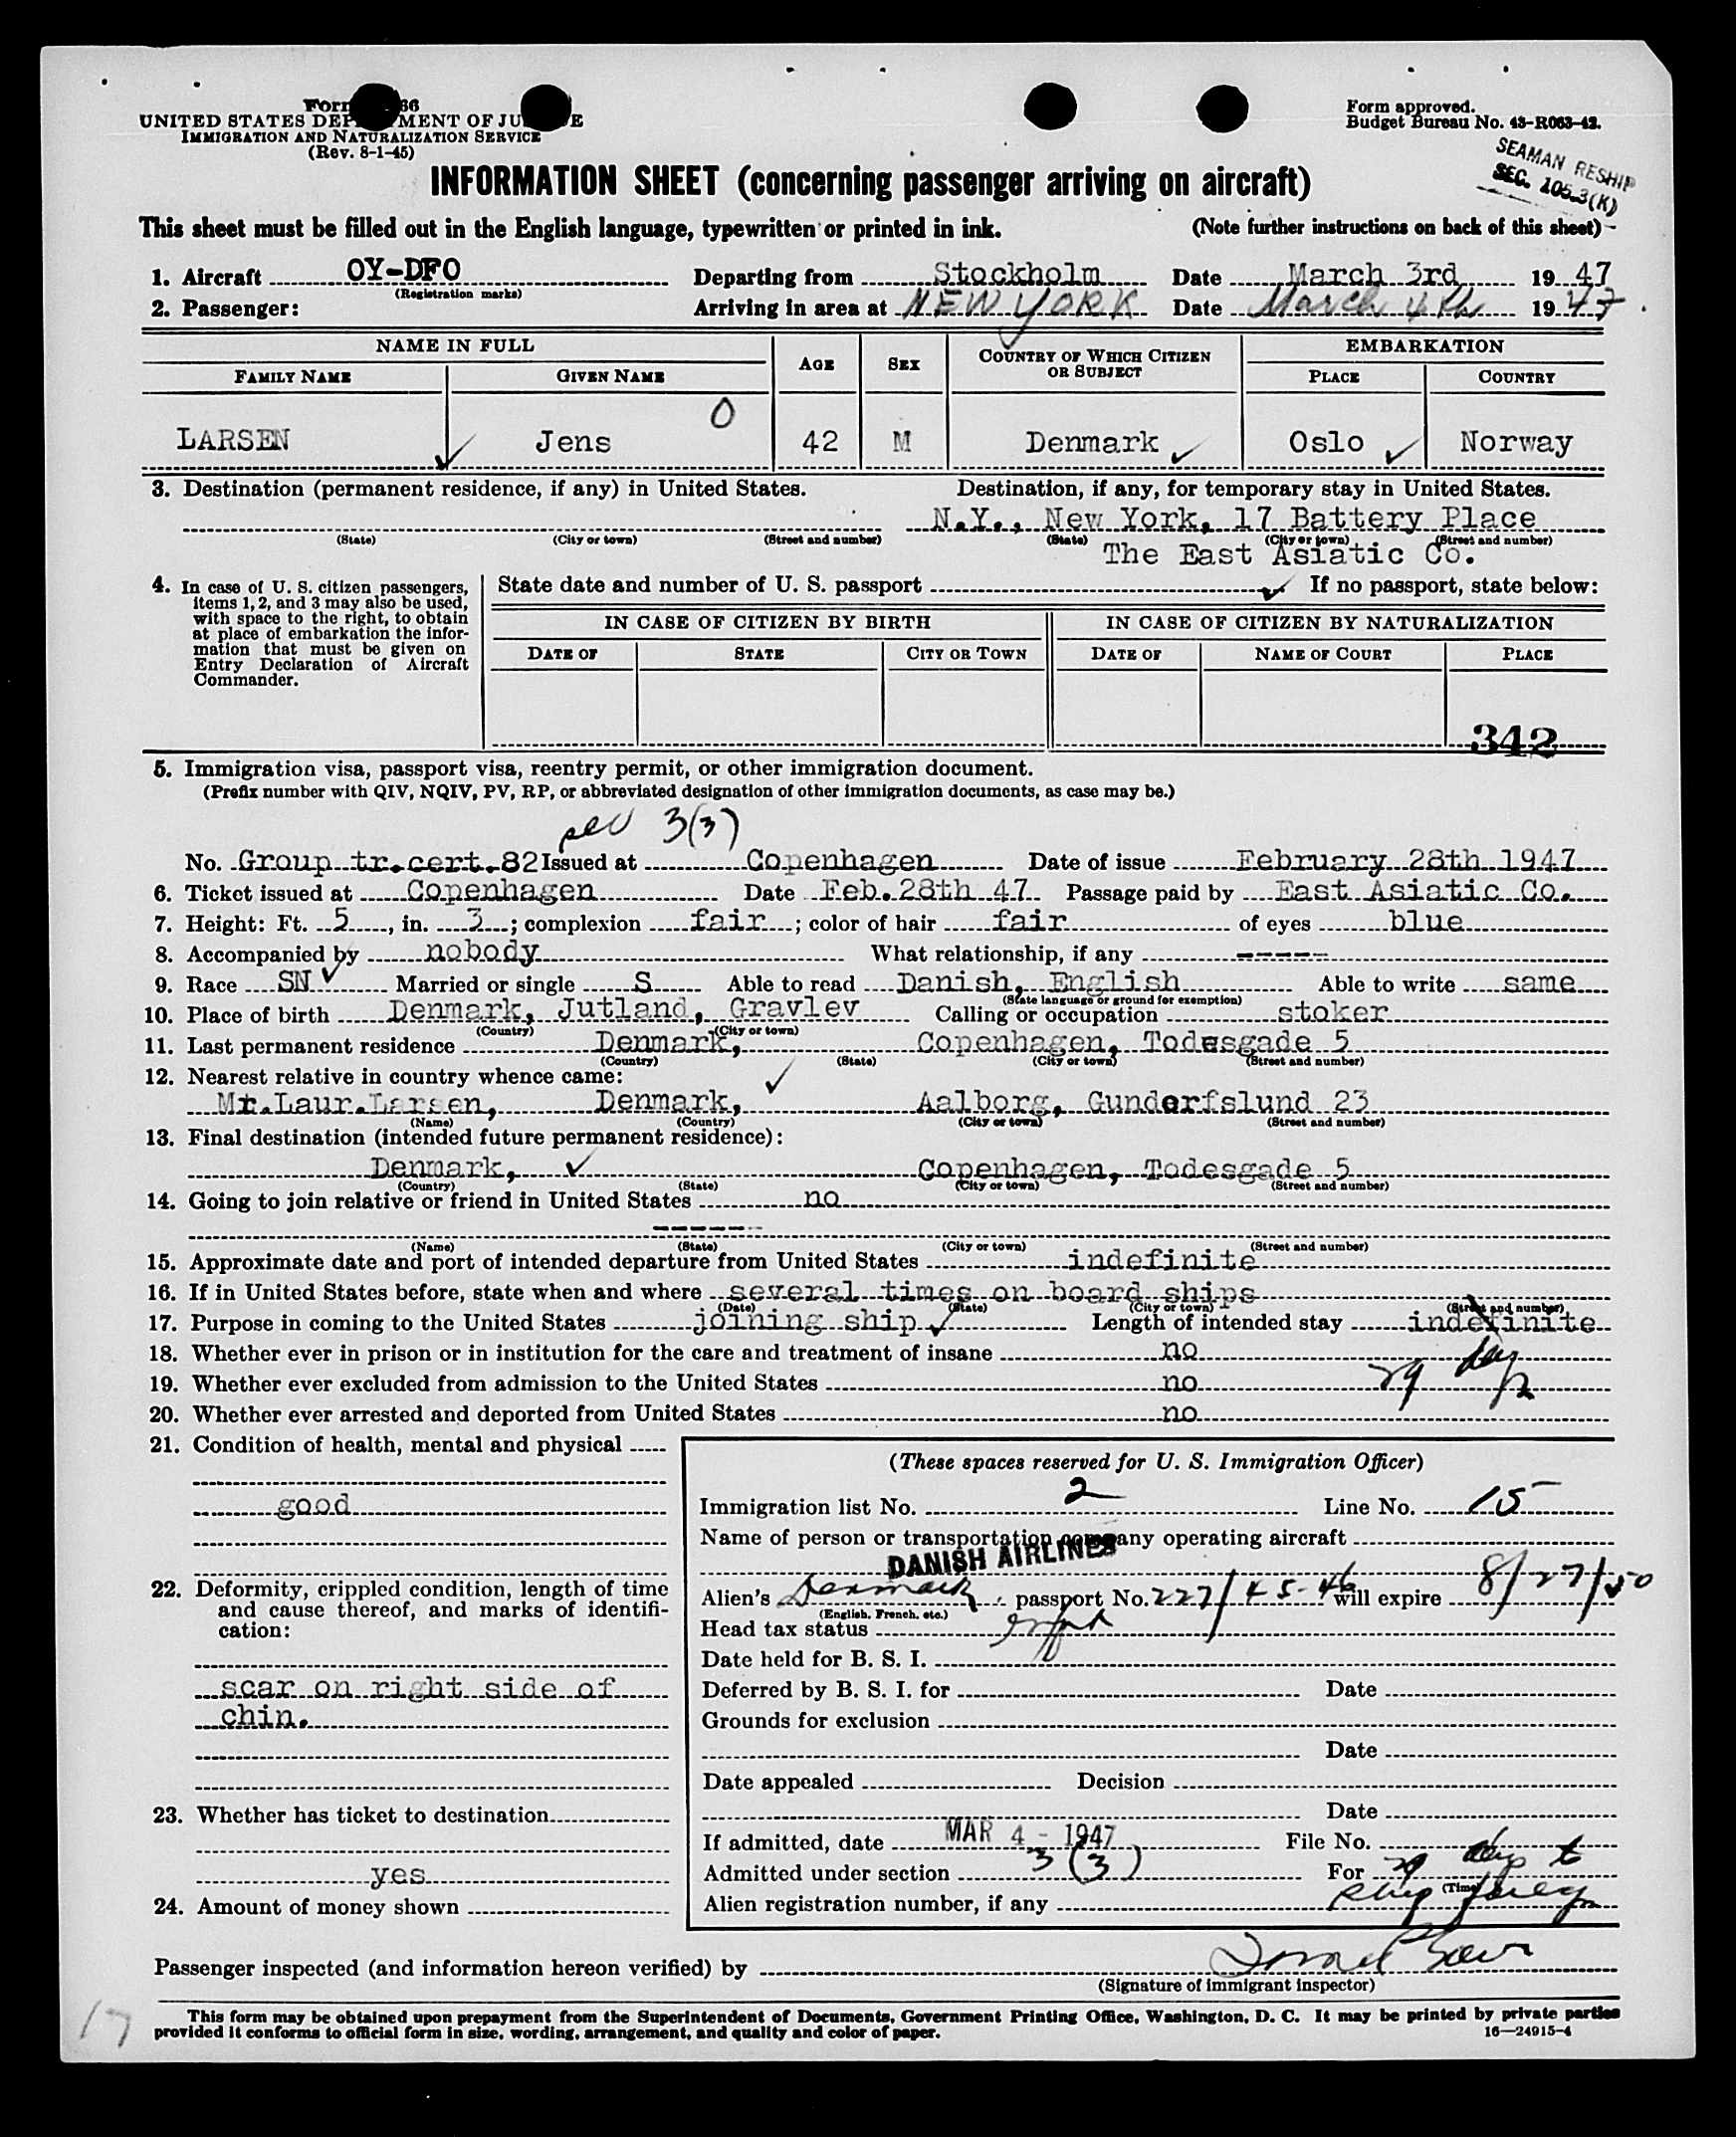 Form 66
UNITED STATES DEP MENT OF JU E
IMMIGRATION AND NATURALIZATION SERVICE
(Rev. 8-1-45)
Form approved.
Budget Bureau No. 43-R063-42.
SEAMAN RESHIP
SEC. 105.3(K)
INFORMATION SHEET (concerning passenger arriving on aircraft)
This sheet must be filled out in the English language, typewritten or printed in ink. (Note further instructions on back of this sheet)
1. Aircraft OY-DFO Departing from Stockholm Date March 3rd 19 47
(Registration marks)
2. Passenger: Arriving in area at NEW YORK Date March 4th 19 47
NAME IN FULL AGE SEX COUNTRY OF WHICH CITIZEN OR SUBJECT EMBARKATION
FAMILY NAME GIVEN NAME PLACE COUNTRY
0
LARSEN Jens 42 M Denmark Oslo Norway
3. Destination (permanent residence, if any) in United States. Destination, if any, for temporary stay in United States.
N.Y., New York, 17 Battery Place
(State) (City or town) (Street and number) (State) (City or town) (Street and number)
The East Asiatic Co.
4. In case of U. S. citizen passengers, items 1, 2, and 3 may also be used, with space to the right, to obtain at place of embarkation the information that must be given on Entry Declaration of Aircraft Commander.
State date and number of U. S. passport If no passport, state below:
IN CASE OF CITIZEN BY BIRTH IN CASE OF CITIZEN BY NATURALIZATION
DATE OF STATE CITY OR TOWN DATE OF NAME OF COURT PLACE
342
5. Immigration visa, passport visa, reentry permit, or other immigration document.
(Prefix number with QIV, NQIV, PV, RP, or abbreviated designation of other immigration documents, as case may be.)
3(3)
No. Group tr.cert.82 Issued at Copenhagen Date of issue February 28th 1947
6. Ticket issued at Copenhagen Date Feb.28th 47 Passage paid by East Asiatic Co.
7. Height: Ft. 5, in. 3; complexion fair; color of hair fair of eyes blue
8. Accompanied by nobody What relationship, if any -----
9. Race SN Married or single S Able to read Danish, English Able to write same
(State language or ground for exemption)
10. Place of birth Denmark, Jutland, Gravlev Calling or occupation stoker
(Country) (City or town)
11. Last permanent residence Denmark, Copenhagen, Todesgade 5
(Country) (State) (City or town) (Street and number)
12. Nearest relative in country whence came:
Mr.Laur.Larsen, Denmark, Aalborg, Gunderfslund 23
(Name) (Country) (City or town) (Street and number)
13. Final destination (intended future permanent residence):
Denmark, Copenhagen, Todesgade 5
(Country) (State) (City or town) (Street and number)
14. Going to join relative or friend in United States no
------
(Name) (State) (City or town) (Street and number)
15. Approximate date and port of intended departure from United States indefinite
16. If in United States before, state when and where several times on board ships
(Date) (State) (City or town) (Street and number)
17. Purpose in coming to the United States joining ship Length of intended stay indefinite
18. Whether ever in prison or in institution for the care and treatment of insane no
29 days
19. Whether ever excluded from admission to the United States no
20. Whether ever arrested and deported from United States no
21. Condition of health, mental and physical
good
22. Deformity, crippled condition, length of time and cause thereof, and marks of identification:
scar on right side of
chin.
23. Whether has ticket to destination
yes
24. Amount of money shown
(These spaces reserved for U. S. Immigration Officer)
Immigration list No. 2 Line No. 15
Name of person or transportation company operating aircraft
DANISH AIRLINES
Alien's Denmark passport No. 227/45-46 will expire 8/27/50
(English, French, etc.)
Head tax status
Date held for B. S. I.
Deferred by B. S. I. for Date
Grounds for exclusion
Date
Date appealed Decision
Date
If admitted, date MAR 4 - 1947 File No.
Admitted under section 3 (3) For 29 days to
(Time)
Alien registration number, if any reship foreign
Passenger inspected (and information hereon verified) by
(Signature of immigrant inspector)
17
This form may be obtained upon prepayment from the Superintendent of Documents, Government Printing Office, Washington, D. C. It may be printed by private parties
provided it conforms to official form in size, wording, arrangement, and quality and color of paper. 16—24915-4